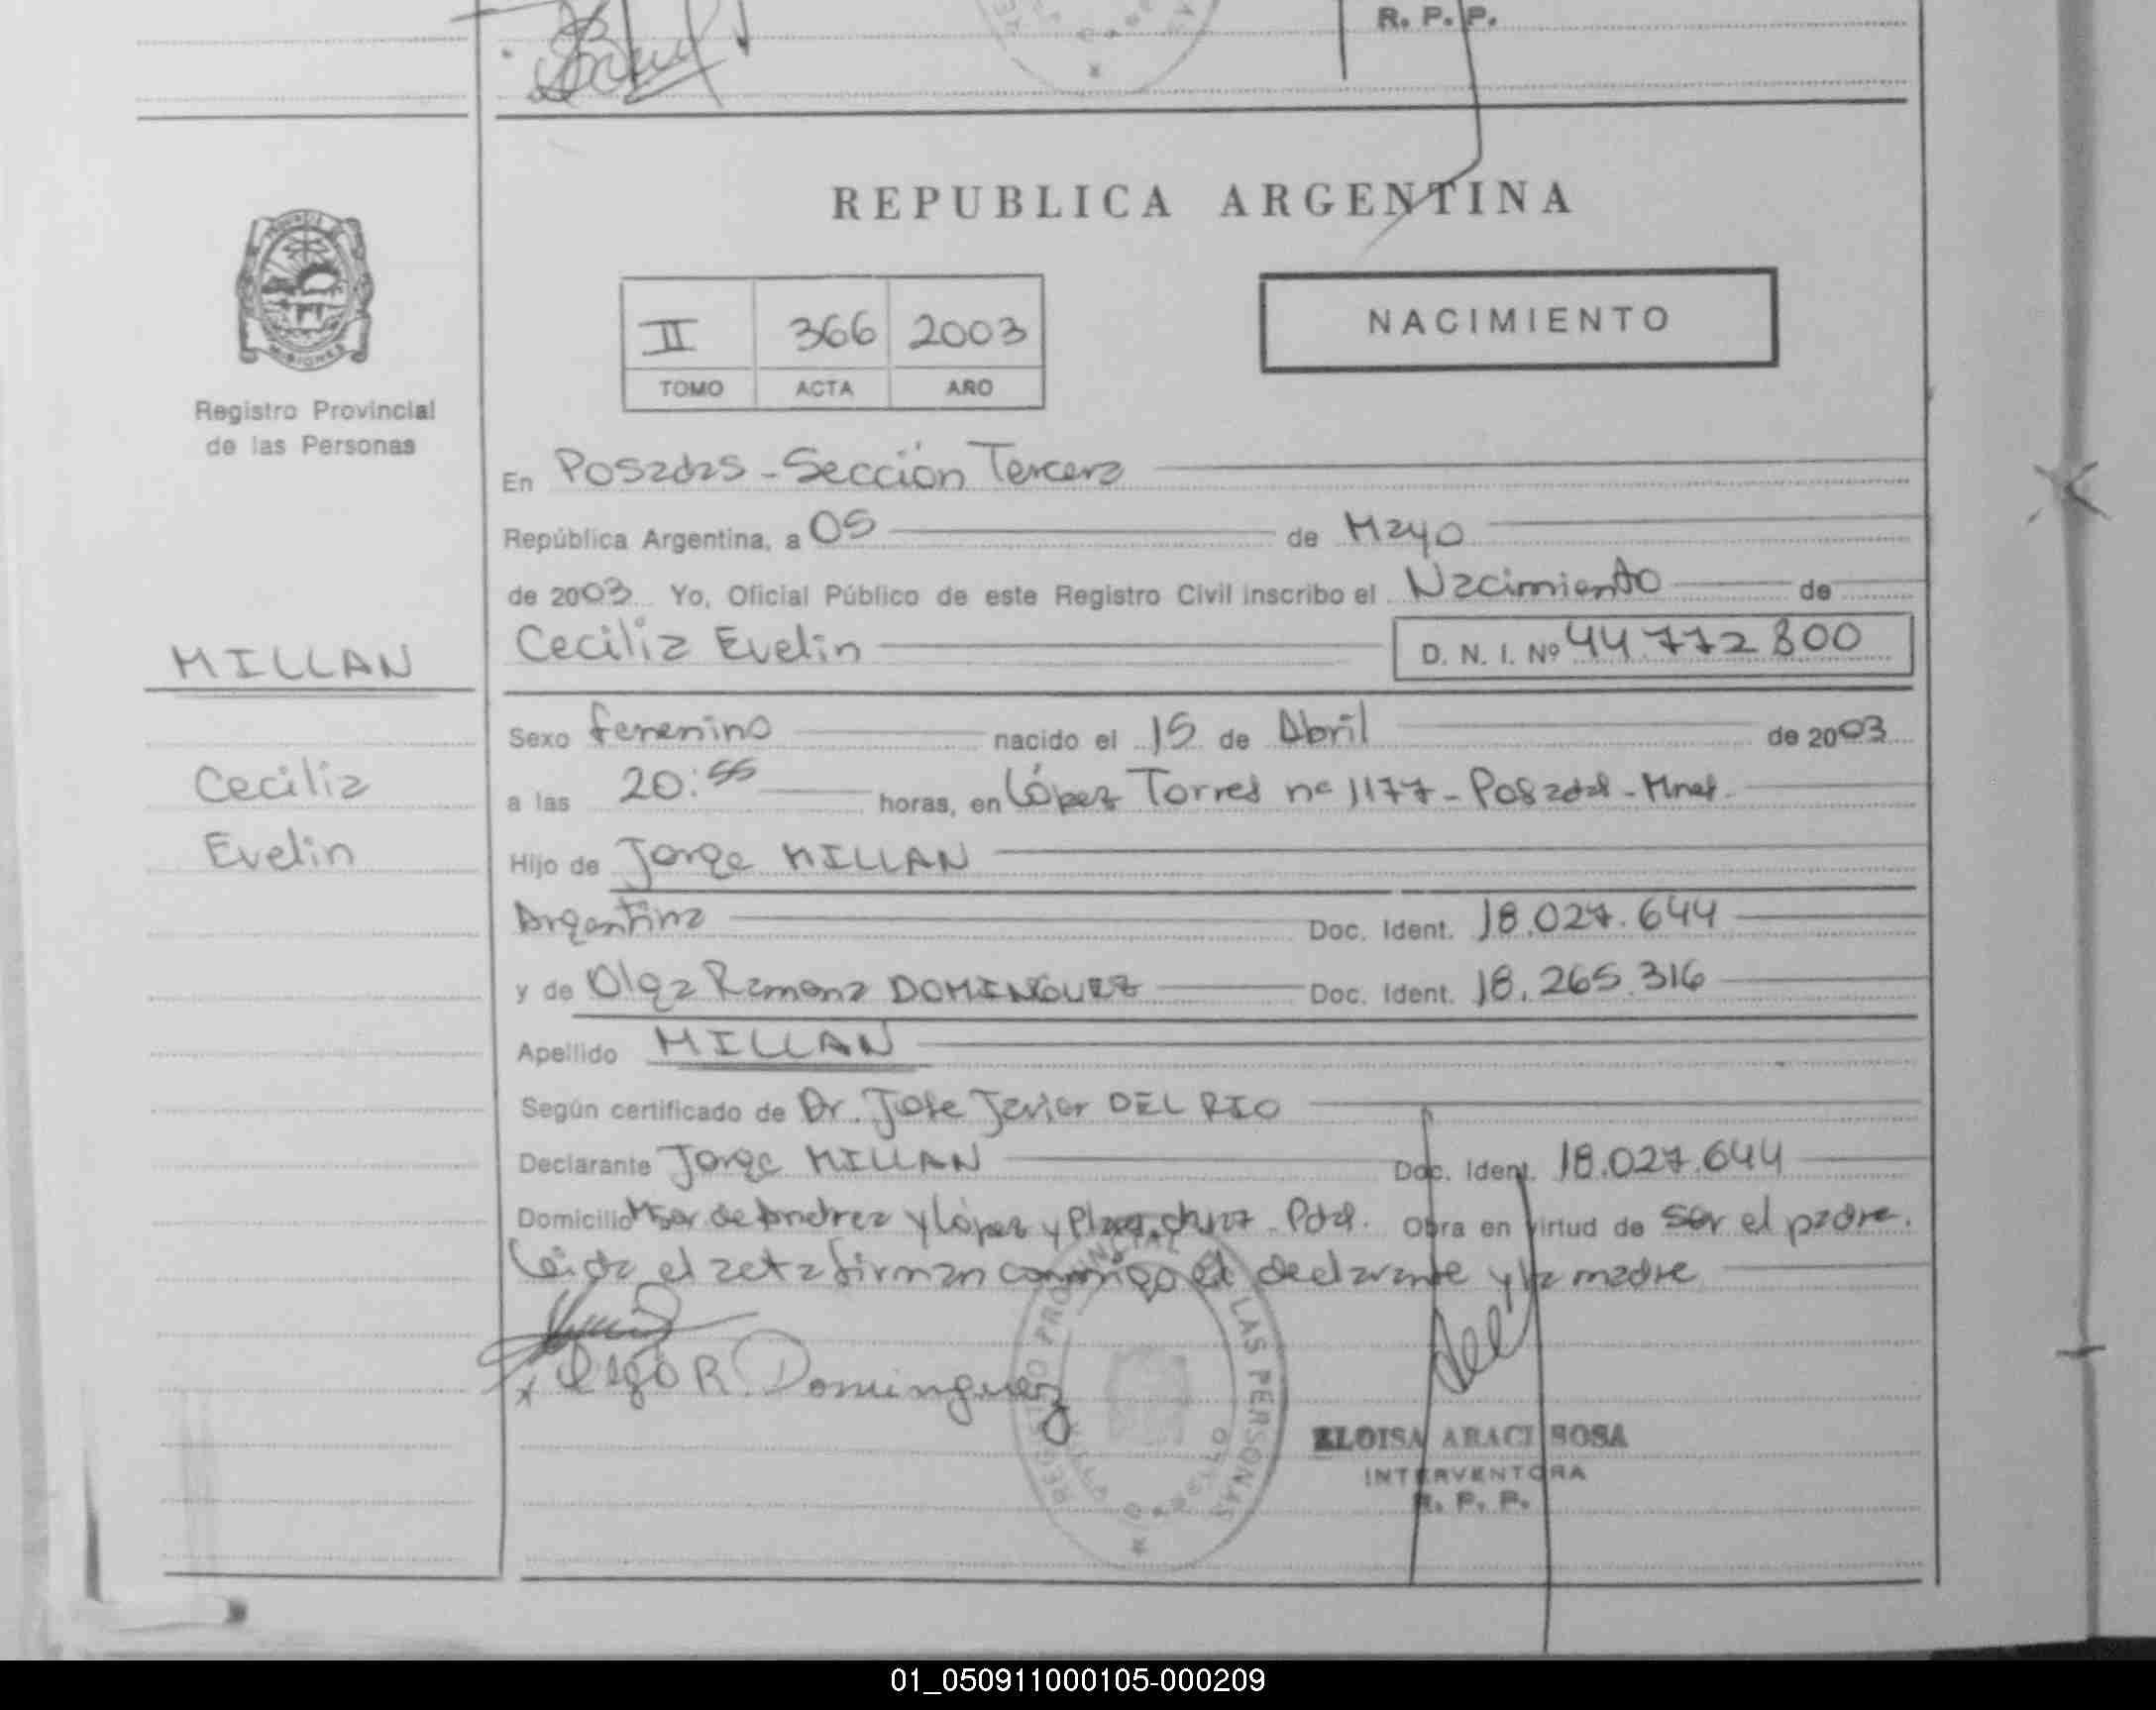 R. P. P.
REPUBLICA ARGENTINA
II 366 2003
TOMO ACTA AÑO
NACIMIENTO
MISIONES
Registro Provincial
de las Personas
En Posadas - Sección Tercera
República Argentina, a 05 de Mayo
de 2003 Yo, Oficial Público de este Registro Civil inscribo el Nacimiento de
MILLAN
Cecilia Evelin D. N. I. Nº 44.772.800
Sexo femenino nacido el 15 de Abril de 2003
Cecilia
a las 20:55 horas, en López Torres nº 1177 - Posadas - Mnes.
Evelin
Hijo de Jorge MILLAN
Argentina Doc. Ident. 18.027.644
y de Olga Ramona DOMINGUEZ Doc. Ident. 18.265.316
Apellido MILLAN
Según certificado de Dr. José Javier DEL RIO
Declarante Jorge MILLAN Doc. Ident. 18.027.644
Domicilio de y López y Pdas. Obra en virtud de ser el padre.
Leida el acta firman conmigo el declarante y la madre
Olga R. Dominguez
REGISTRO PROVINCIAL DE LAS PERSONAS
ELOISA ARACI SOSA
INTERVENTORA
R. P. P.
01_050911000105-000209